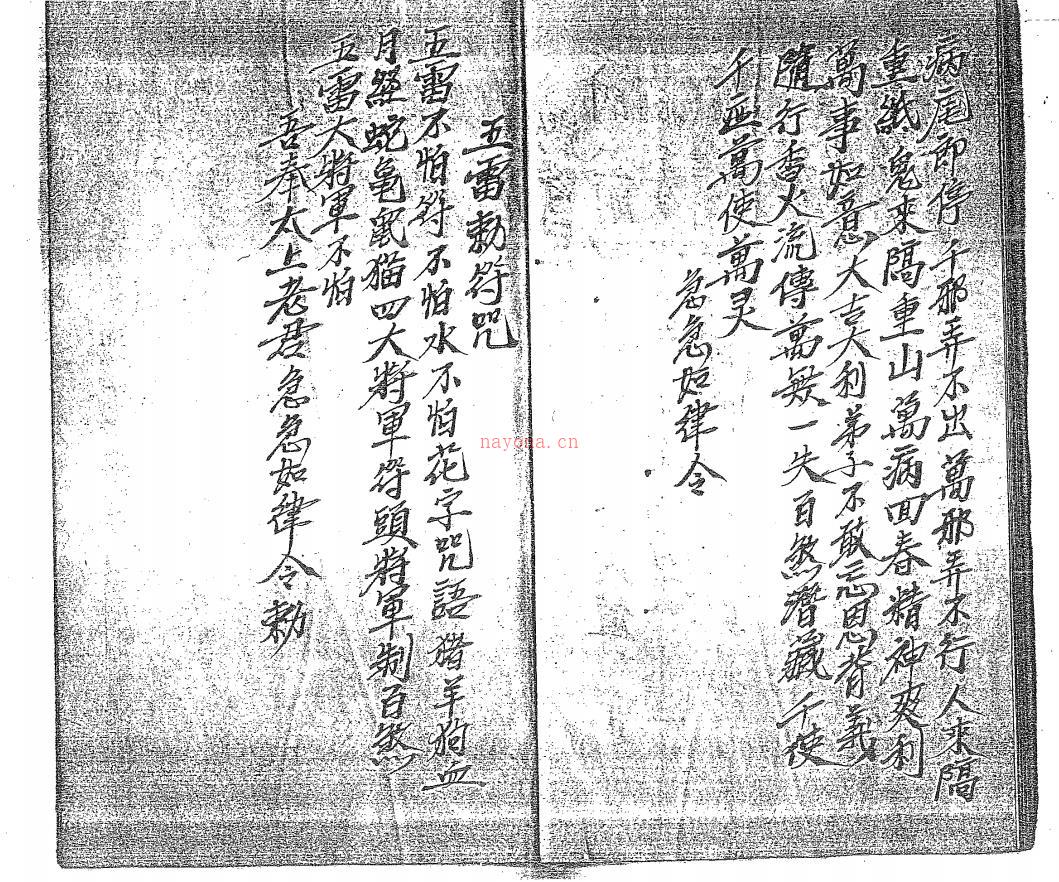 病尾即停千邪弄不出萬邪弄不行人來隔
重紙鬼來隔重山萬病回春精神爽利
萬事如意大吉大利弟子不敢忘恩背義
隨行香火流傳萬無一失百煞潛藏千使
千灵萬使萬灵
急急如律令
五雷勅符咒
五雷不怕符不怕水不怕花字咒語猪羊狗血
月經蛇龟鼠猫四大將軍符頭將軍制百煞
五雷大將軍不怕
吾奉太上老君急急如律令勅
nayona.cn